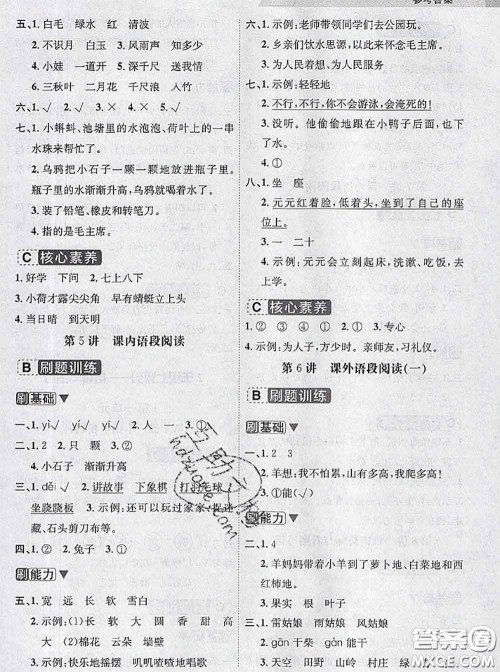 参考答案
五、1. 白毛 绿水 红 清波
2. 不识月 白玉 3. 风雨声 知多少
4. 小娃 一道开 5. 深千尺 送我情
6. 三秋叶 二月花 千尺浪 入竹
六、1. √ 2. √ 3. × 4. × 5. √
七、1. 小蝌蚪、池塘里的水泡泡、荷叶上的一串
水珠来帮忙了。
2. 乌鸦把小石子一颗一颗地放进瓶子里。
瓶子里的水渐渐升高,乌鸦就喝着水了。
3. 装了铅笔、橡皮和转笔刀。
4. 指的是毛主席。
C 核心素养
1. 好学 下问 2. 七上八下
3. 小荷才露尖尖角 早有蜻蜓立上头
4. 当日晴 到天明
第5讲 课内语段阅读
B 刷题训练
刷基础
一、1. yí√ yì√ yí√ yì√
二、1. √ 2. 只 颗 3. ②
4. 小石子 渐渐升高
三、1. děi√ 2. 讲故事 下象棋 打羽毛球
坐跷跷板 3. 示例:还可以玩过家家、捉迷
藏、石头剪刀布等。
四、1. ② 2. 兔子 3. ①
刷能力
五、1. 宽 远 长 软 雪白
2. 示例:(1)长 水 大 圆 香 甜 高
大 (2)棉花 云朵 墙壁
3. 示例:快乐地摇摆 勇敢地飞翔
六、1. 示例:老师带领同学们去公园玩。
2. 乡亲们饮水思源,以此来怀念毛主席。
3. 为人民着想、为人民服务
七、1. 示例:轻轻地
2. 不行,不行,你不会游泳,会淹死的!
3. 没听。他偷偷地跟在小鸭子后面,也下
了水。
4. ①
八、1. 坐 座
2. 元元红着脸,低着头,坐到了自己的座
位上。
3. 一 二十
4. 示例:元元会立刻起床,洗漱、吃饭,去
上学。
C 核心素养
1. ② ④ ① ③ 2. ① 3. 专心
4. 示例:为人子,方少时。亲师友,习礼仪。
第6讲 课外语段阅读(一)
B 刷题训练
刷基础
一、1. 2 3
2. 羊想:我不怕累,山有多高,我能爬多高!
3. ①能(√)
刷能力
二、1. 4
2. 羊妈妈带着小羊到了萝卜地、白菜地和西
红柿地。
3. 果实 根 叶子
三、1. 雷姑娘 雨姑娘 风姑娘
四、1. gān 干柴 gàn 能干
2. 青山 蓝天 田野 村庄 绿